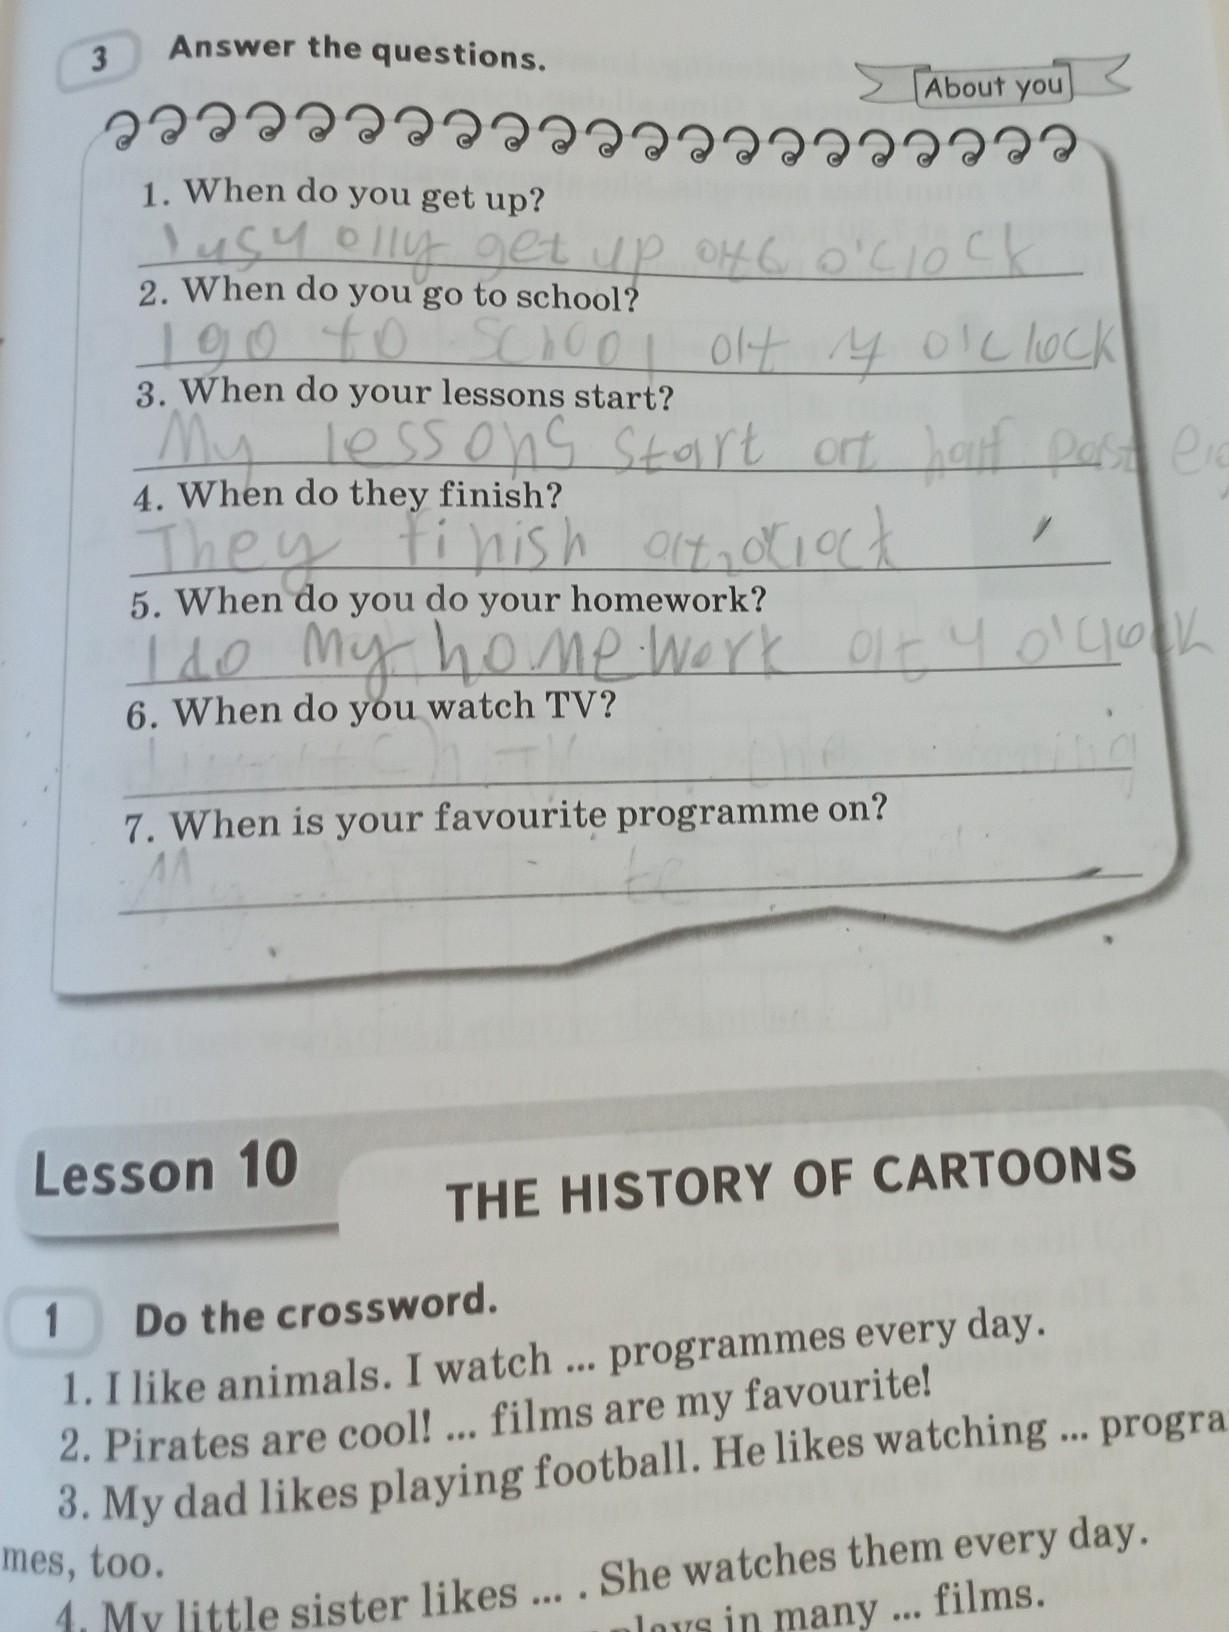 3 Answer the questions.
About you
1. When do you get up?
I usyally get up at 6 o'clock
2. When do you go to school?
I go to school at o'clock
3. When do your lessons start?
My lessons start at half past
4. When do they finish?
They finish at 2 o'clock
5. When do you do your homework?
I do my homework at 4 o'clock
6. When do you watch TV?
TV the
7. When is your favourite programme on?
My
Lesson 10
THE HISTORY OF CARTOONS
1 Do the crossword.
1. I like animals. I watch ... programmes every day.
2. Pirates are cool! ... films are my favourite!
3. My dad likes playing football. He likes watching ... progra
mes, too.
4. My little sister likes ... . She watches them every day.
plays in many ... films.